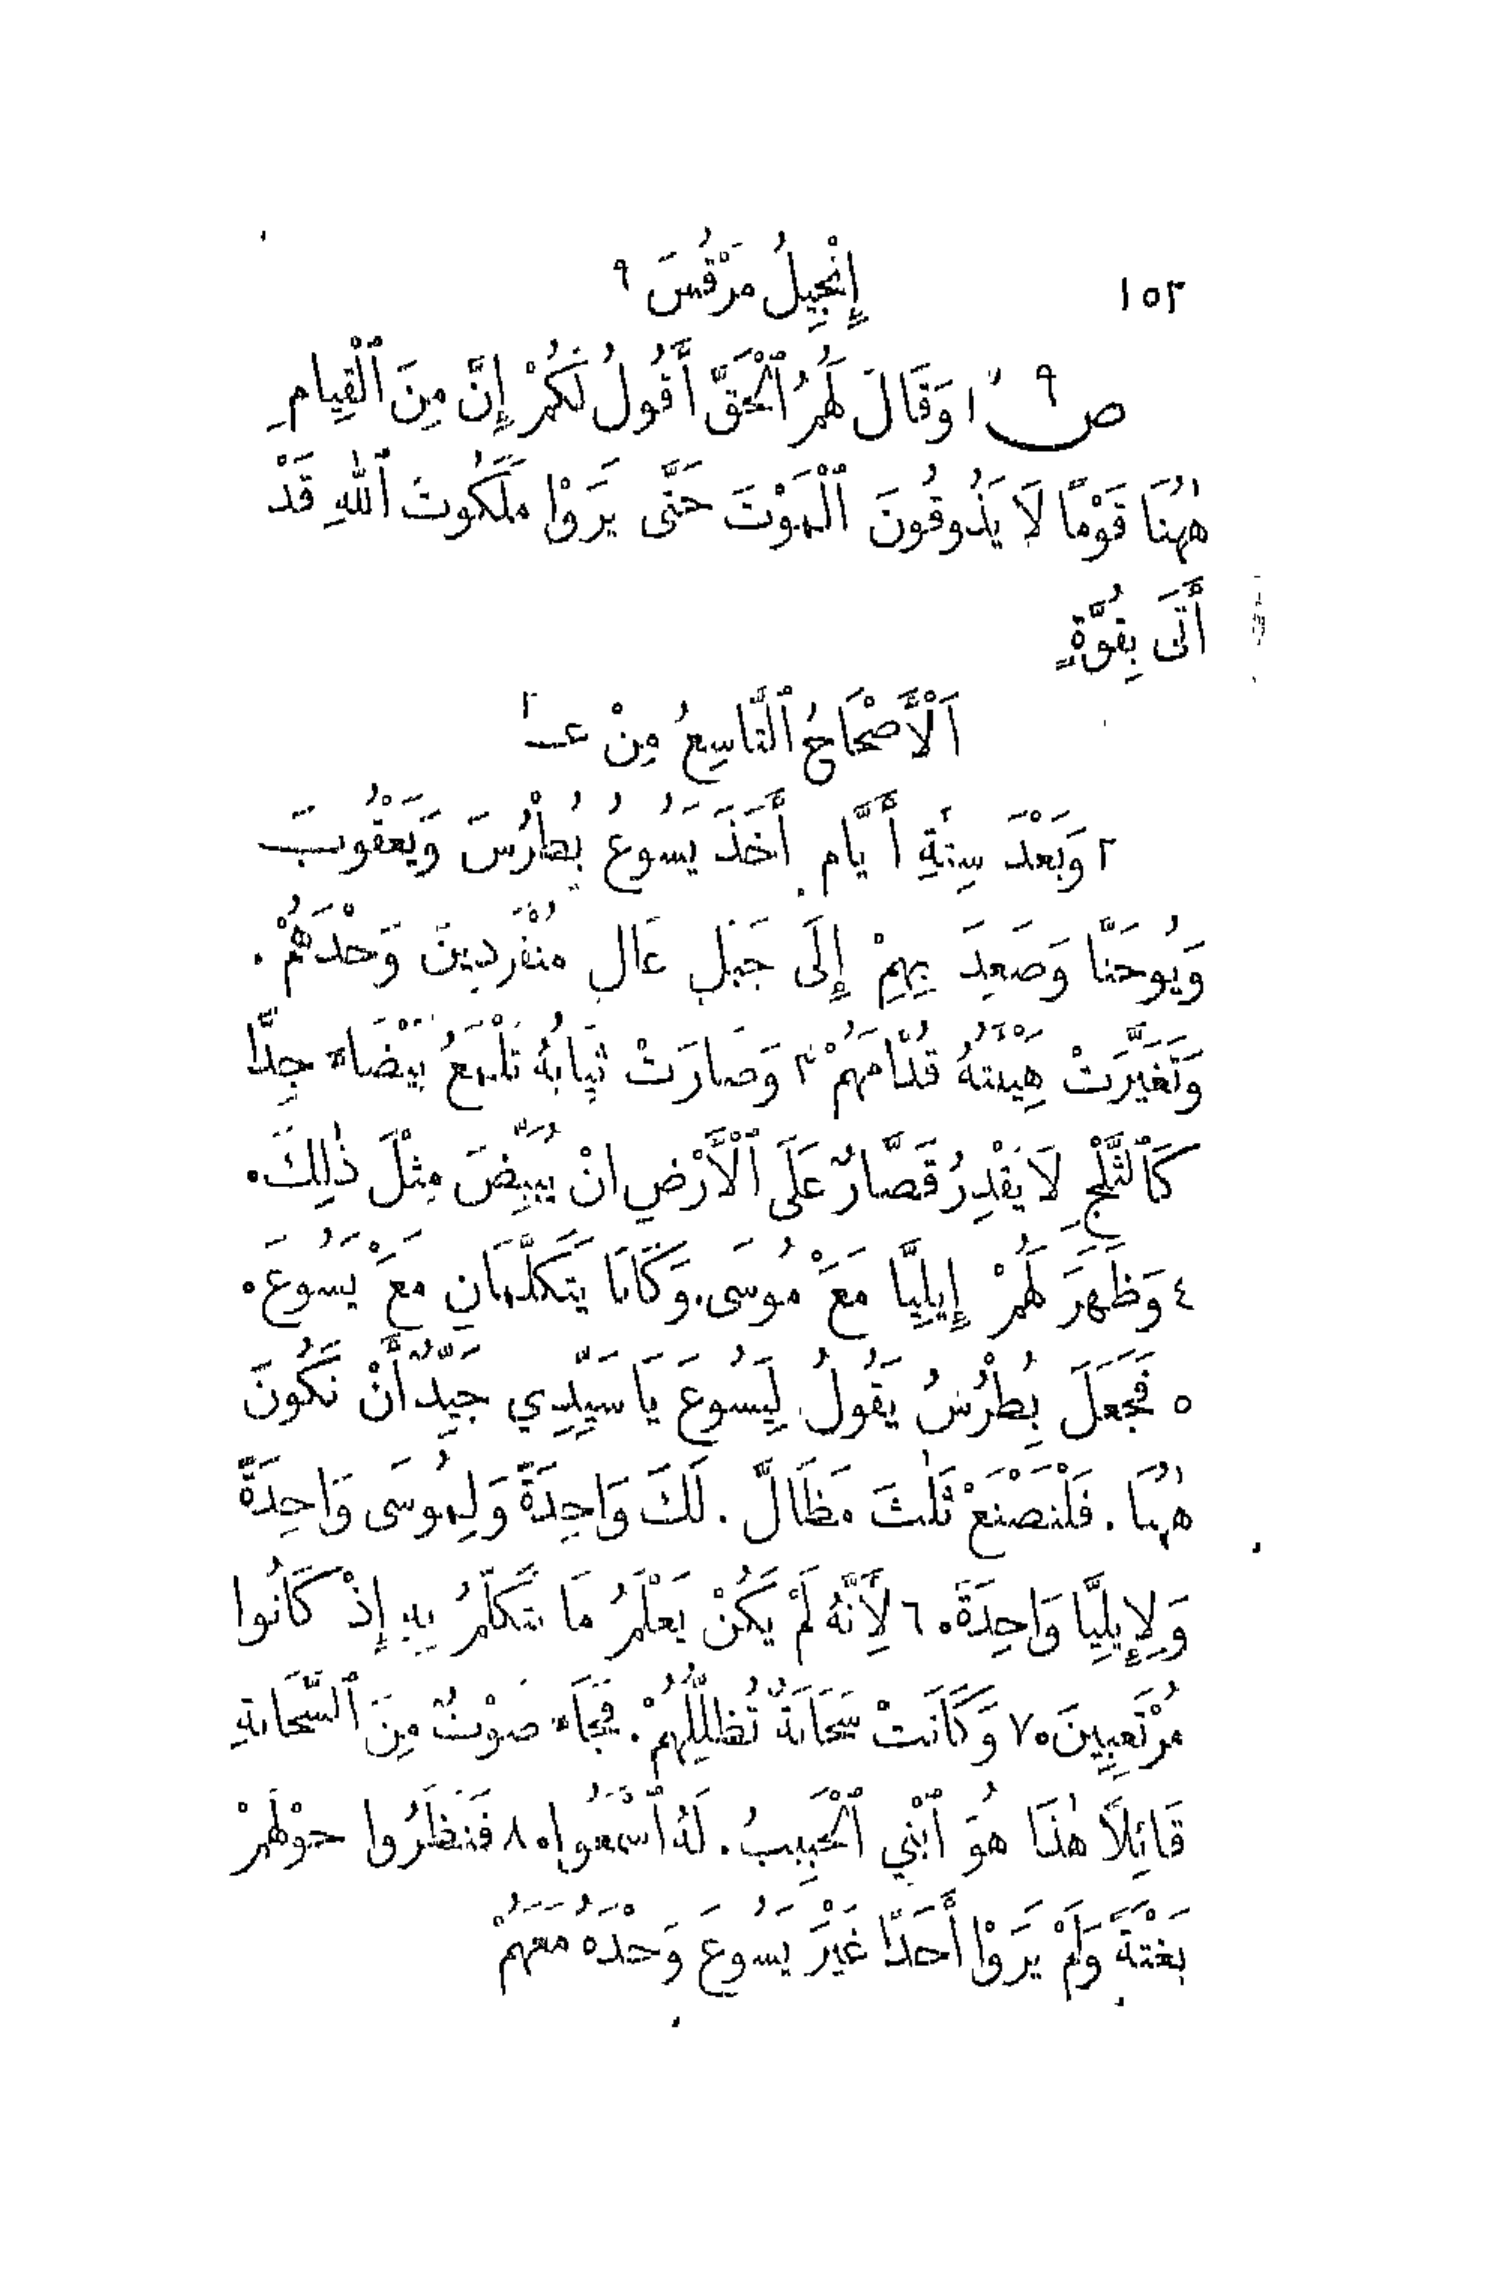 ١٥٢ إِنْجِيلُ مَرْقُسَ ٩
ص ٩ ١ وَقَالَ لَهُمُ ٱلْحَقَّ أَقُولُ لَكُمْ إِنَّ مِنَ ٱلْقِيَامِ
هٰهُنَا قَوْمًا لَا يَذُوقُونَ ٱلْمَوْتَ حَتَّى يَرَوْا مَلَكُوتَ ٱللهِ قَدْ
أَتَى بِقُوَّةٍ
اَلْأَصْحَاحُ ٱلتَّاسِعُ مِنْ عــ٢
٢ وَبَعْدَ سِتَّةِ أَيَّامٍ أَخَذَ يَسُوعُ بُطْرُسَ وَيَعْقُوبَ
وَيُوحَنَّا وَصَعِدَ بِهِمْ إِلَى جَبَلٍ عَالٍ مُنْفَرِدِينَ وَحْدَهُمْ.
وَتَغَيَّرَتْ هَيْئَتُهُ قُدَّامَهُمْ ٣ وَصَارَتْ ثِيَابُهُ تَلْمَعُ بَيْضَاءَ جِدًّا
كَٱلثَّلْجِ لَا يَقْدِرُ قَصَّارٌ عَلَى ٱلْأَرْضِ أَنْ يُبَيِّضَ مِثْلَ ذٰلِكَ.
٤ وَظَهَرَ لَهُمْ إِيلِيَّا مَعَ مُوسَى. وَكَانَا يَتَكَلَّمَانِ مَعَ يَسُوعَ.
٥ فَجَعَلَ بُطْرُسُ يَقُولُ لِيَسُوعَ يَا سَيِّدِي جَيِّدٌ أَنْ نَكُونَ
هٰهُنَا. فَلْنَصْنَعْ ثَلٰثَ مَظَالَّ. لَكَ وَاحِدَةً وَلِمُوسَى وَاحِدَةً
وَلِإِيلِيَّا وَاحِدَةً. ٦ لِأَنَّهُ لَمْ يَكُنْ يَعْلَمُ مَا يَتَكَلَّمُ بِهِ إِذْ كَانُوا
مُرْتَعِبِينَ. ٧ وَكَانَتْ سَحَابَةٌ تُظَلِّلُهُمْ. فَجَاءَ صَوْتٌ مِنَ ٱلسَّحَابَةِ
قَائِلًا هٰذَا هُوَ ٱبْنِي ٱلْحَبِيبُ. لَهُ ٱسْمَعُوا. ٨ فَنَظَرُوا حَوْلَهُمْ
بَغْتَةً وَلَمْ يَرَوْا أَحَدًا غَيْرَ يَسُوعَ وَحْدَهُ مَعَهُمْ